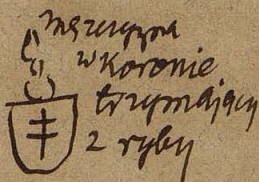 mężczyzna
w koronie
trzymający
2 ryby